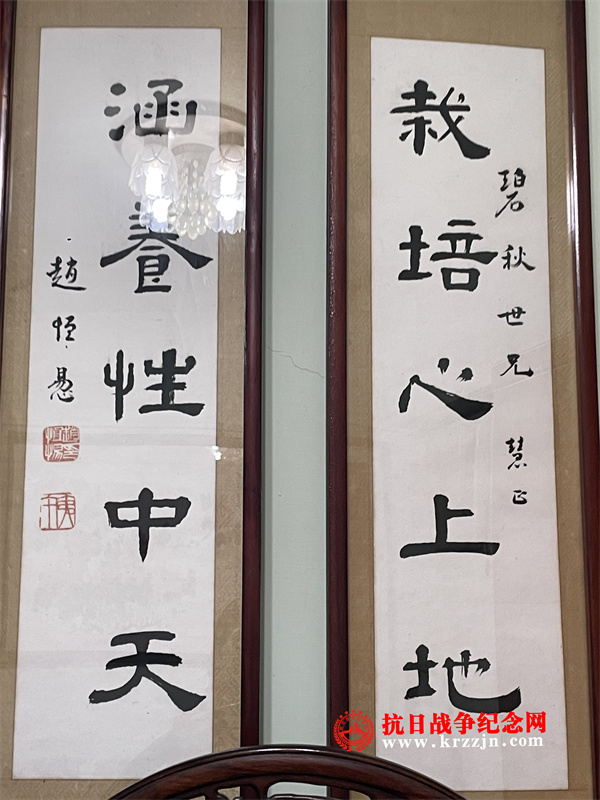 碧秋世兄 慧正
栽培心上地
涵養性中天
趙恒惖
抗日战争纪念网
www.krzzjn.com